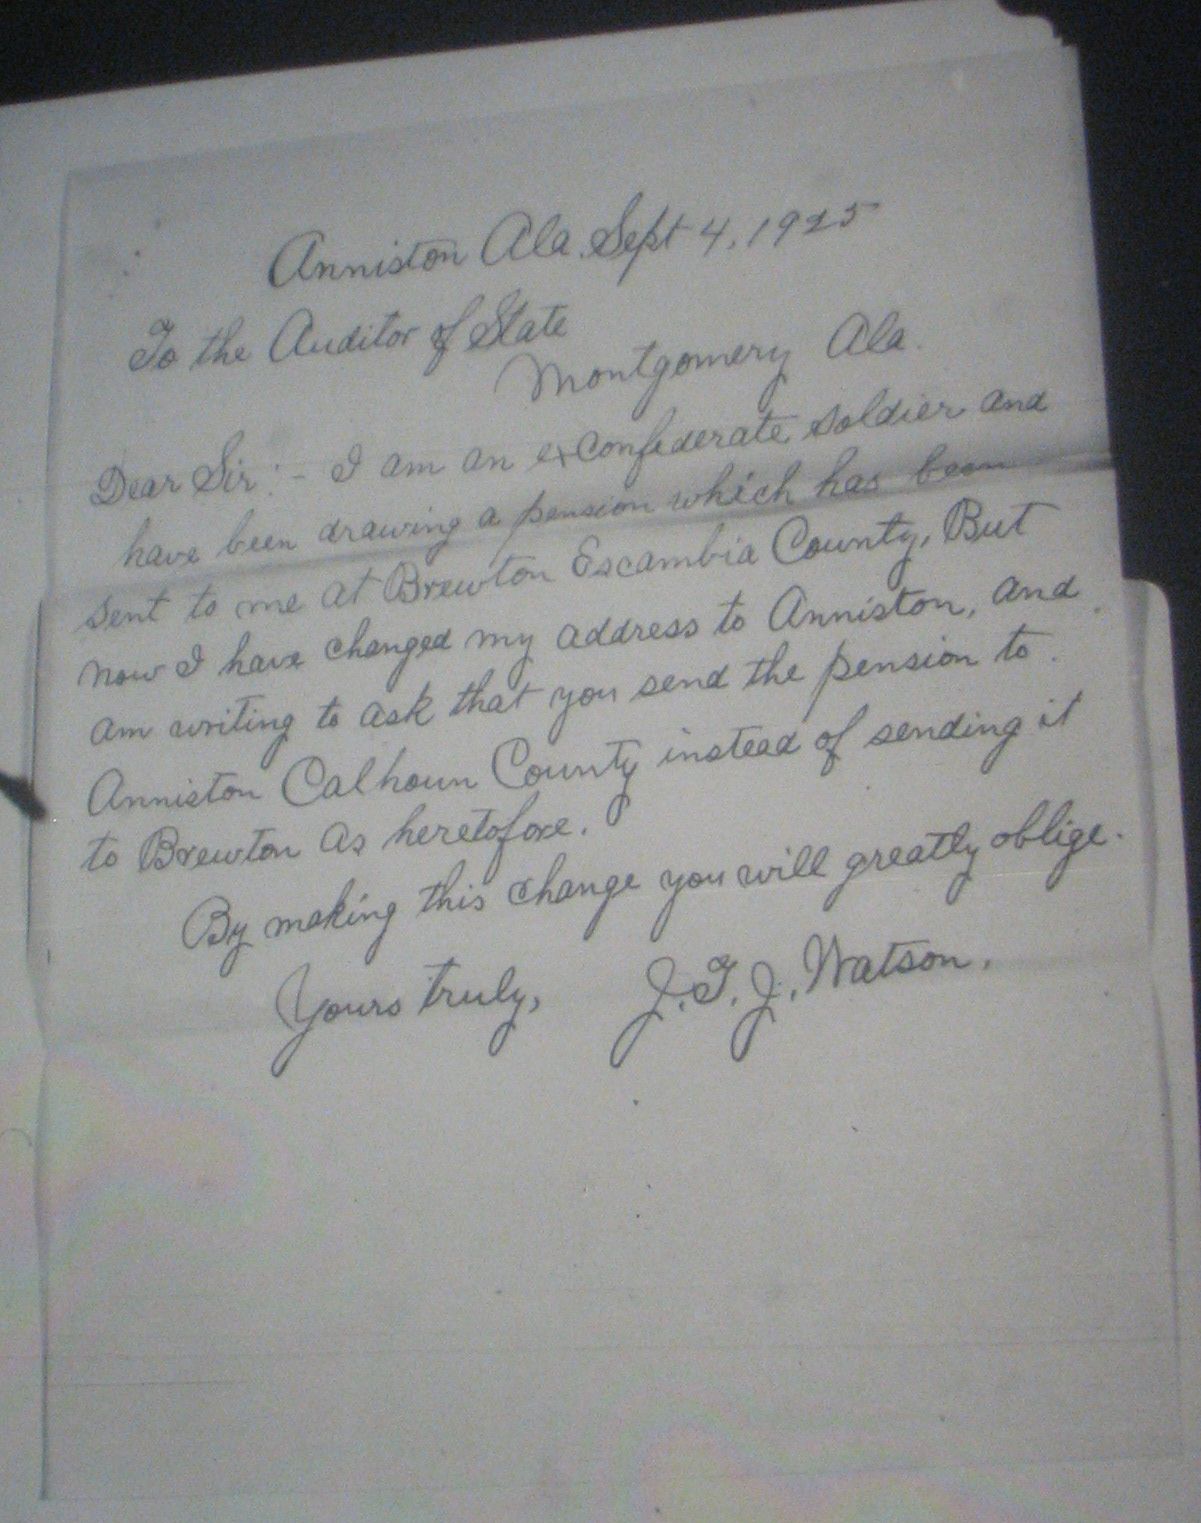 Anniston Ala. Sept 4, 1925
To the Auditor of State
Montgomery Ala.
Dear Sir:- I am an exConfederate soldier and
have been drawing a pension which has been
sent to me at Brewton Escambia County, But
now I have changed my address to Anniston, and
am writing to ask that you send the pension to
Anniston Calhoun County instead of sending it
to Brewton as heretofore.
By making this change you will greatly oblige.
Yours truly, J. T. J. Watson.